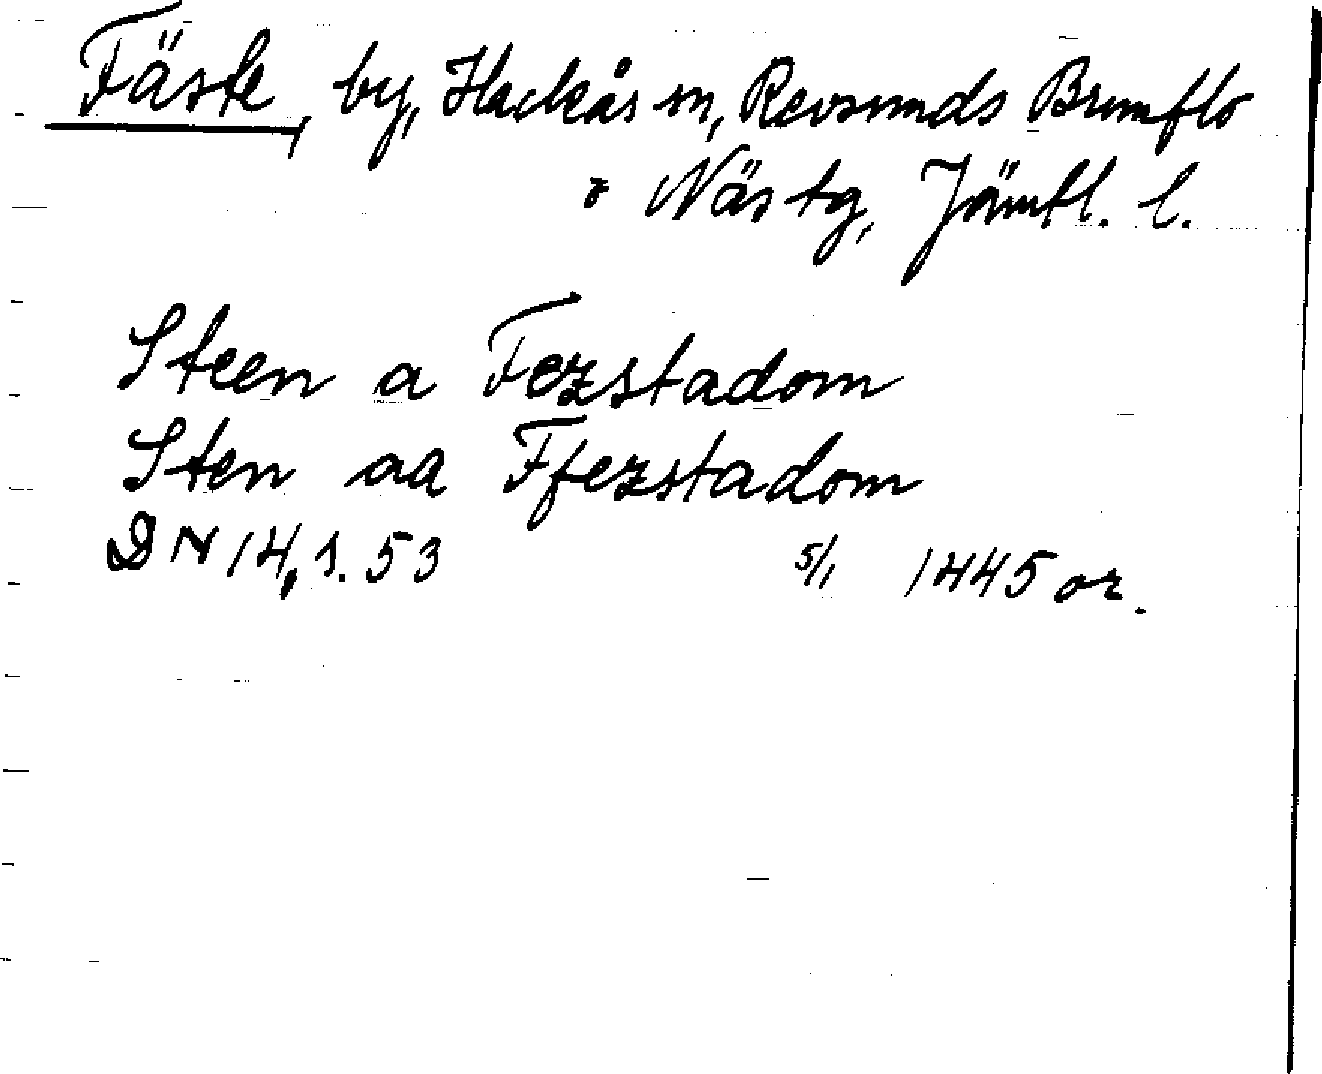 Fäste, by, Hackås sn, Revsunds Brunflo
o Näs tg, Jämtl. l.
Steen a Fezstadom
Sten aa Ffezstadom
DN 14, s. 53 5/1 1445 or.